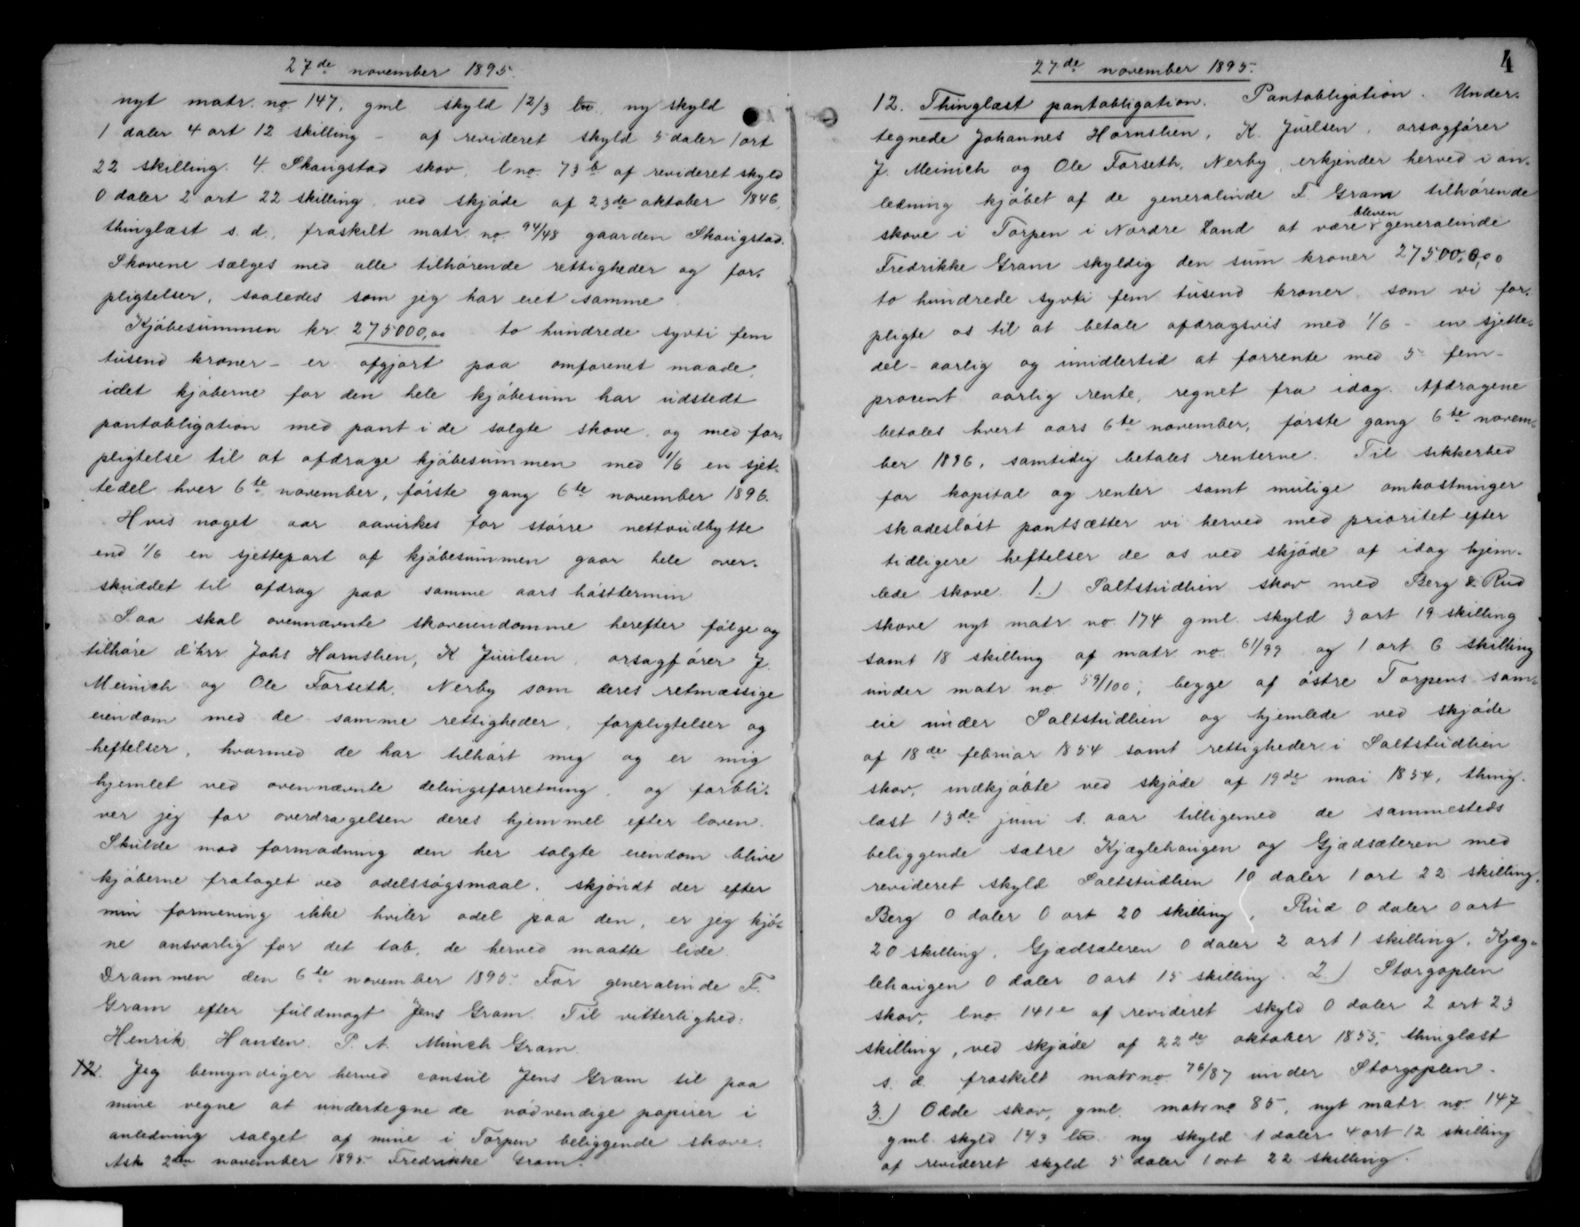 27de november 1895.
nyt matr. no 147, gml skyld 12/3 ny skyld
1 daler 4 ort 12 skilling - af revideret skyld 5 daler 1 ort
22 skilling. 4. Skaugstad skov, lno. 73b af revideret skyld
0 daler 2 ort 22 skilling ved skjøde af 23de oktober 1846,
thinglæst s. d. fraskilt matr. no 94/48 gaarden Skaugstad.
Skovene sælges med alle tilhørende rettigheder og for-
pligtelser, saaledes som jeg har eiet samme.
Kjøbesummen kr 275000,00 to hundrede sytti fem
tusend kroner - er afgjort paa omforenet maade,
idet kjøberne for den hele kjøbesum har udstedt
pantobligation med pant i de solgte skove og med for-
pligtelse til at afdrage kjøbesummen med 1/6 en sjet-
tedel hver 6te november, første gang 6te november 1896.
Hvis noget aar aavirkes for større nettoudbytte
end 1/6 en sjettepart af kjøbesummen gaar hele over-
skuddet til afdrag paa samme aars høsttermin
Saa skal ovennævnte skoveiendomme herefter følge og
tilhøre d'hrr Johs Hornslien, K Juulsen, orsagfører J.
Meinich og Ole Forseth, Nerby som deres retmæssige
eiendom med de samme rettigheder, forpligtelser og
heftelser, hvormed de har tilhørt mig og er mig
hjemlet ved ovennævnte delingsforretning, og forbli-
ver jeg for overdragelsen deres hjemmel efter loven.
Skulde mod formodning den her solgte eiendom blive
kjøberne frataget ved odelssøgsmaal, skjøndt der efter
min formening ikke hviler odel paa den, er jeg kjø-
ne ansvarlig for det tab, de herved maatte lide.
Drammen den 6te november 1895. For generalinde F.
Gram efter fuldmagt Jens Gram. Til vitterlighed:
Henrik Hansen. P. A. Munch Gram.
12. Jeg bemyndiger herved consul Jens Gram til paa
mine vegne at undertegne de nødvendige papirer i
anledning salget af mine i Torpen beliggende skove.
Ask 2den november 1895 Fredrikke Gram.
27de november 1895.
4
12. Thinglæst pantobligation. Pantobligation. Under-
tegnede Johannes Hornslien, K. Juelsen, orsagfører
J. Meinich og Ole Forseth, Nerby erkjender herved i an-
ledning kjøbet af de generalinde F. Gram tilhørende
skove i Torpen i Nordre Land at være bleven generalinde
Fredrikke Gram skyldig den sum kroner 275000,00
to hundrede sytti fem tusend kroner som vi for-
pligte os til at betale afdragsvis med 1/6 - en sjette-
del - aarlig og imidlertid at forrente med 5 fem-
procent aarlig rente, regnet fra idag. Afdragene
betales hvert aars 6te november, første gang 6te novem-
ber 1896, samtidig betales renterne. Til sikkerhed
for kapital og renter samt mulige omkostninger
skadesløst pantsætter vi herved med prioritet efter
tidligere heftelser de os ved skjøde af idag hjem-
lede skove 1.) Saltstudlien skov med Berg & Rud
skove nyt matr no. 174 gml. skyld 3 ort 19 skilling
samt 18 skilling af matr no. 61/99 og 1 ort 6 skilling
under matr no 59/100, begge af østre Torpens sam-
eie under Saltstudlien og hjemlede ved skjøde
af 18de februar 1854 samt rettigheder i Saltstudlien
skov, indkjøbte ved skjøde af 19de mai 1854, thing-
læst 13de juni s. aar tilligemed de sammesteds
beliggende sætre Kjæglehaugen og Gjædsæteren med
revideret skyld Saltstudlien 10 daler 1 ort 22 skilling,
Berg 0 daler 0 ort 20 skilling, Rud 0 daler 0 ort
20 skilling, Gjædsæteren 0 daler 2 ort 1 skilling, Kjæg-
lehaugen 0 daler 0 ort 15 skilling. 2.) Storgoplen
skov, lno. 141e af revideret skyld 0 daler 2 ort 23
skilling, ved skjøde af 22de oktober 1855, thinglæst
s. d. fraskilt matr no 76/87 under Storgoplen.
3.) Odde skov, gml. matr no 85, nyt matr. no 147
gml. skyld 143 ny skyld 1 daler 4 ort 12 skilling
af revideret skyld 5 daler 1 ort 22 skilling.